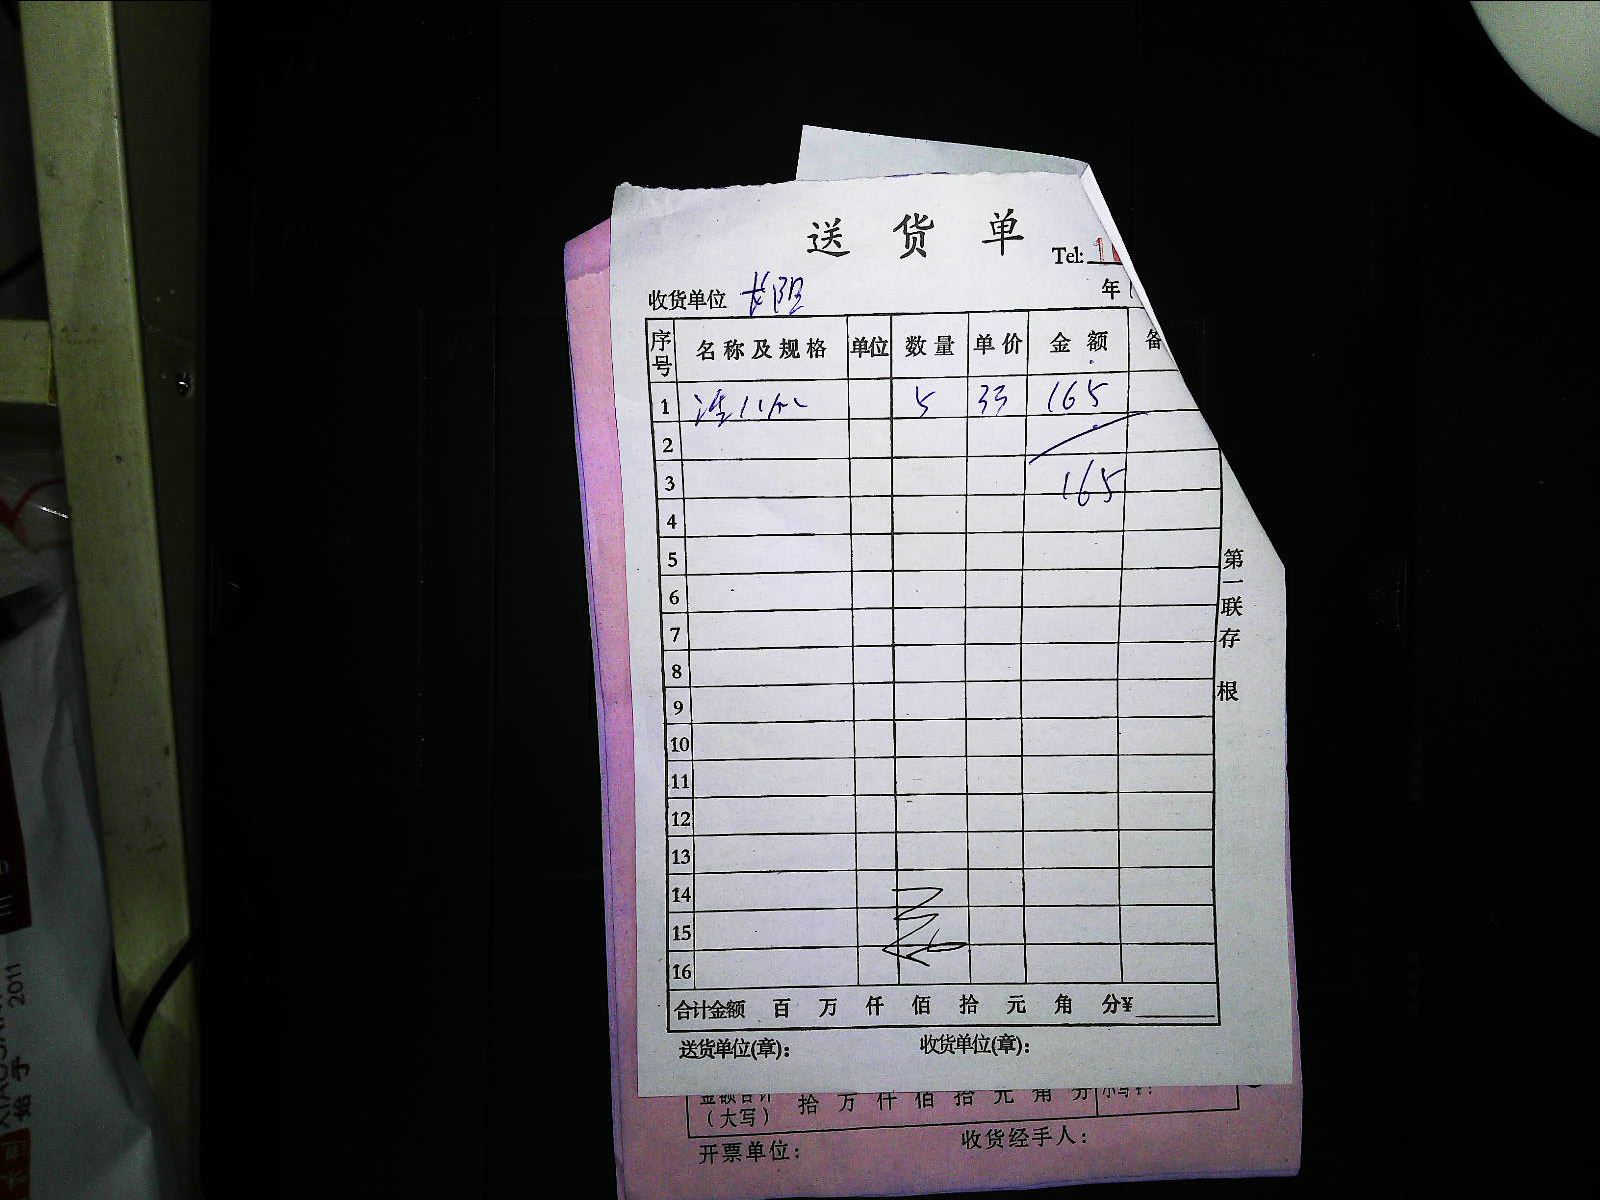 送货单
Tel:
收货单位 长阳 年
序号 名称及规格 单位 数量 单价 金额 备
1 5 33 165
2
3 165
4
5
6
7
8
9
10
11
12
13
14
15
16
合计金额 百 万 仟 佰 拾 元 角 分¥
送货单位(章): 收货单位(章):
第一联存根
金额合计 拾 万 仟 佰 拾 元 角 分 小写¥:
(大写)
开票单位: 收货经手人:
2011